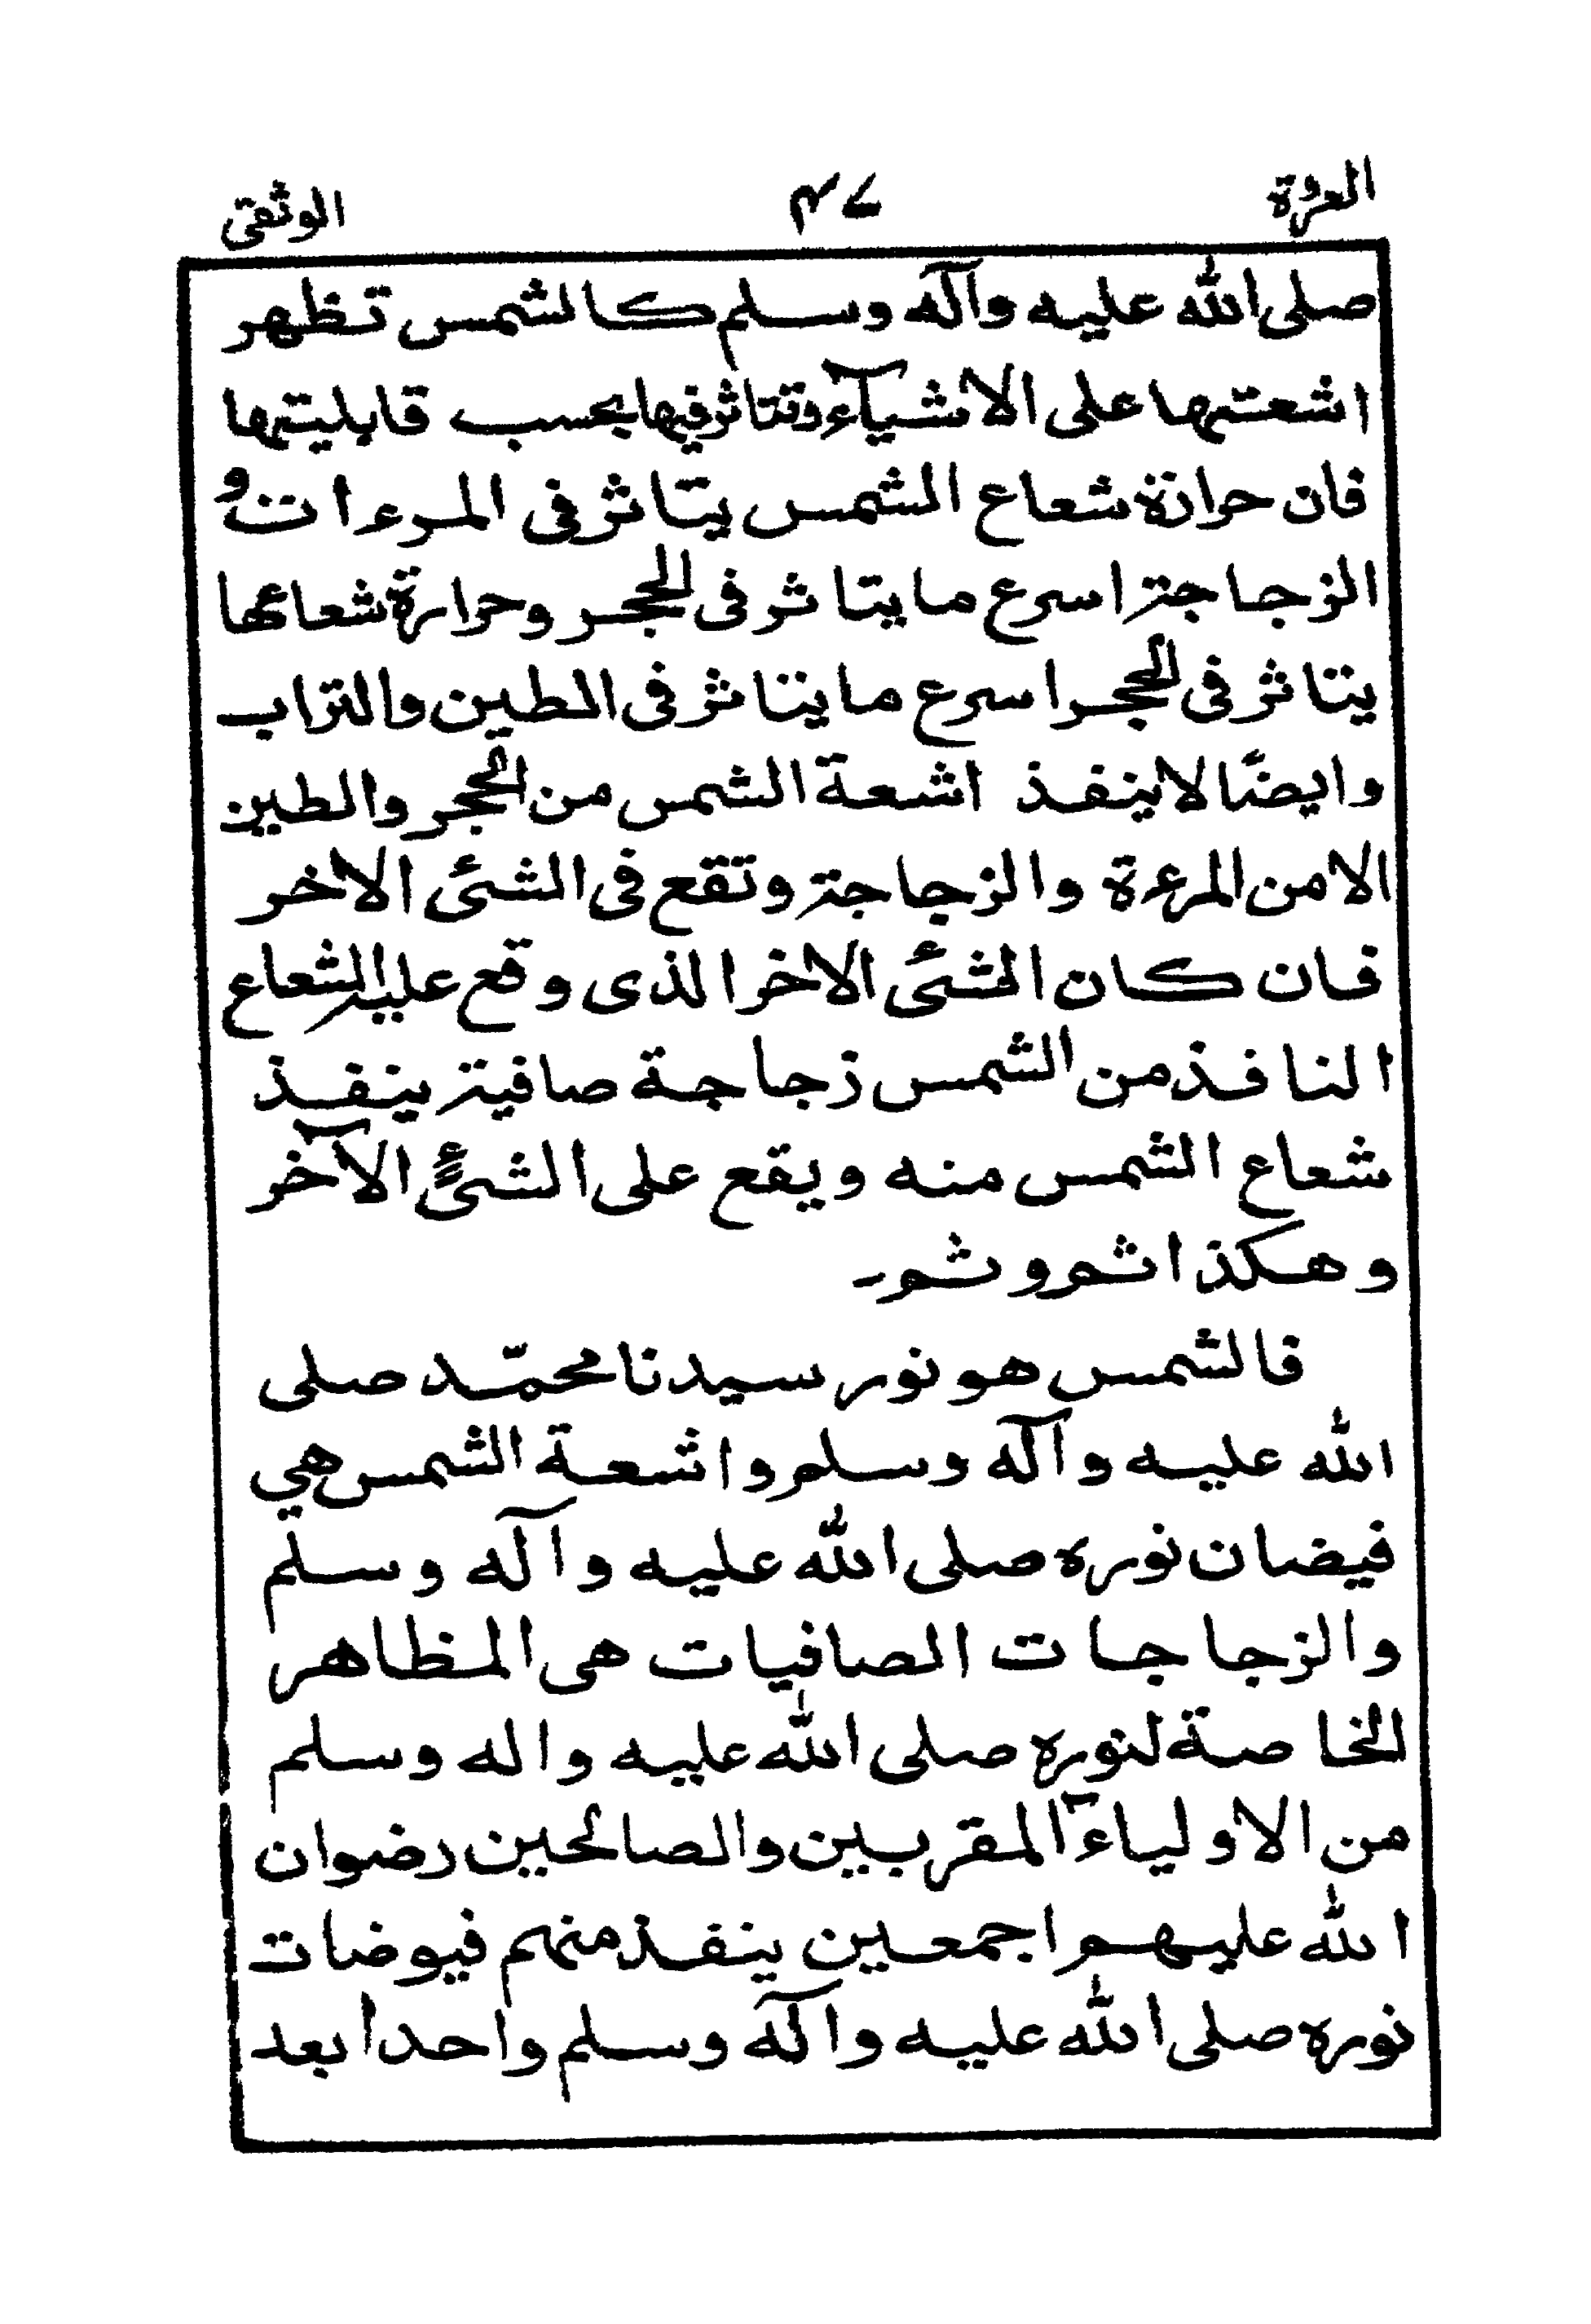 العروة ٤٧ الوثقى
صلى الله عليه وآله وسلم كالشمس تظهر
اشعتها على الاشيآء وتتاثر فيها بحسب قابليتها
فان حرارة شعاع الشمس يتاثر فى المرءات و
الزجاجة اسرع مايتاثر فى الحجر وحرارة شعاعها
يتاثر فى الحجر اسرع مايتاثر فى الطين والتراب
وايضًا لاينفذ اشعة الشمس من الحجر والطين
الا من المرءة والزجاجة وتقع فى الشئ الاخر
فان كان الشئ الاخر الذى وقع عليه الشعاع
النافذ من الشمس زجاجة صافية ينفذ
شعاع الشمس منه ويقع على الشئ الآخر
وهكذا ثم وثم-
فالشمس هو نور سيدنا محمّد صلى
الله عليه وآله وسلم واشعة الشمس هي
فيضان نوره صلى الله عليه وآله وسلم
والزجاجات الصافيات هى المظاهر
الخاصة لنوره صلى الله عليه واله وسلم
من الاولياء المقربين والصالحين رضوان
الله عليهم اجمعين ينفذ منهم فيوضات
نوره صلى الله عليه وآله وسلم واحدا بعد